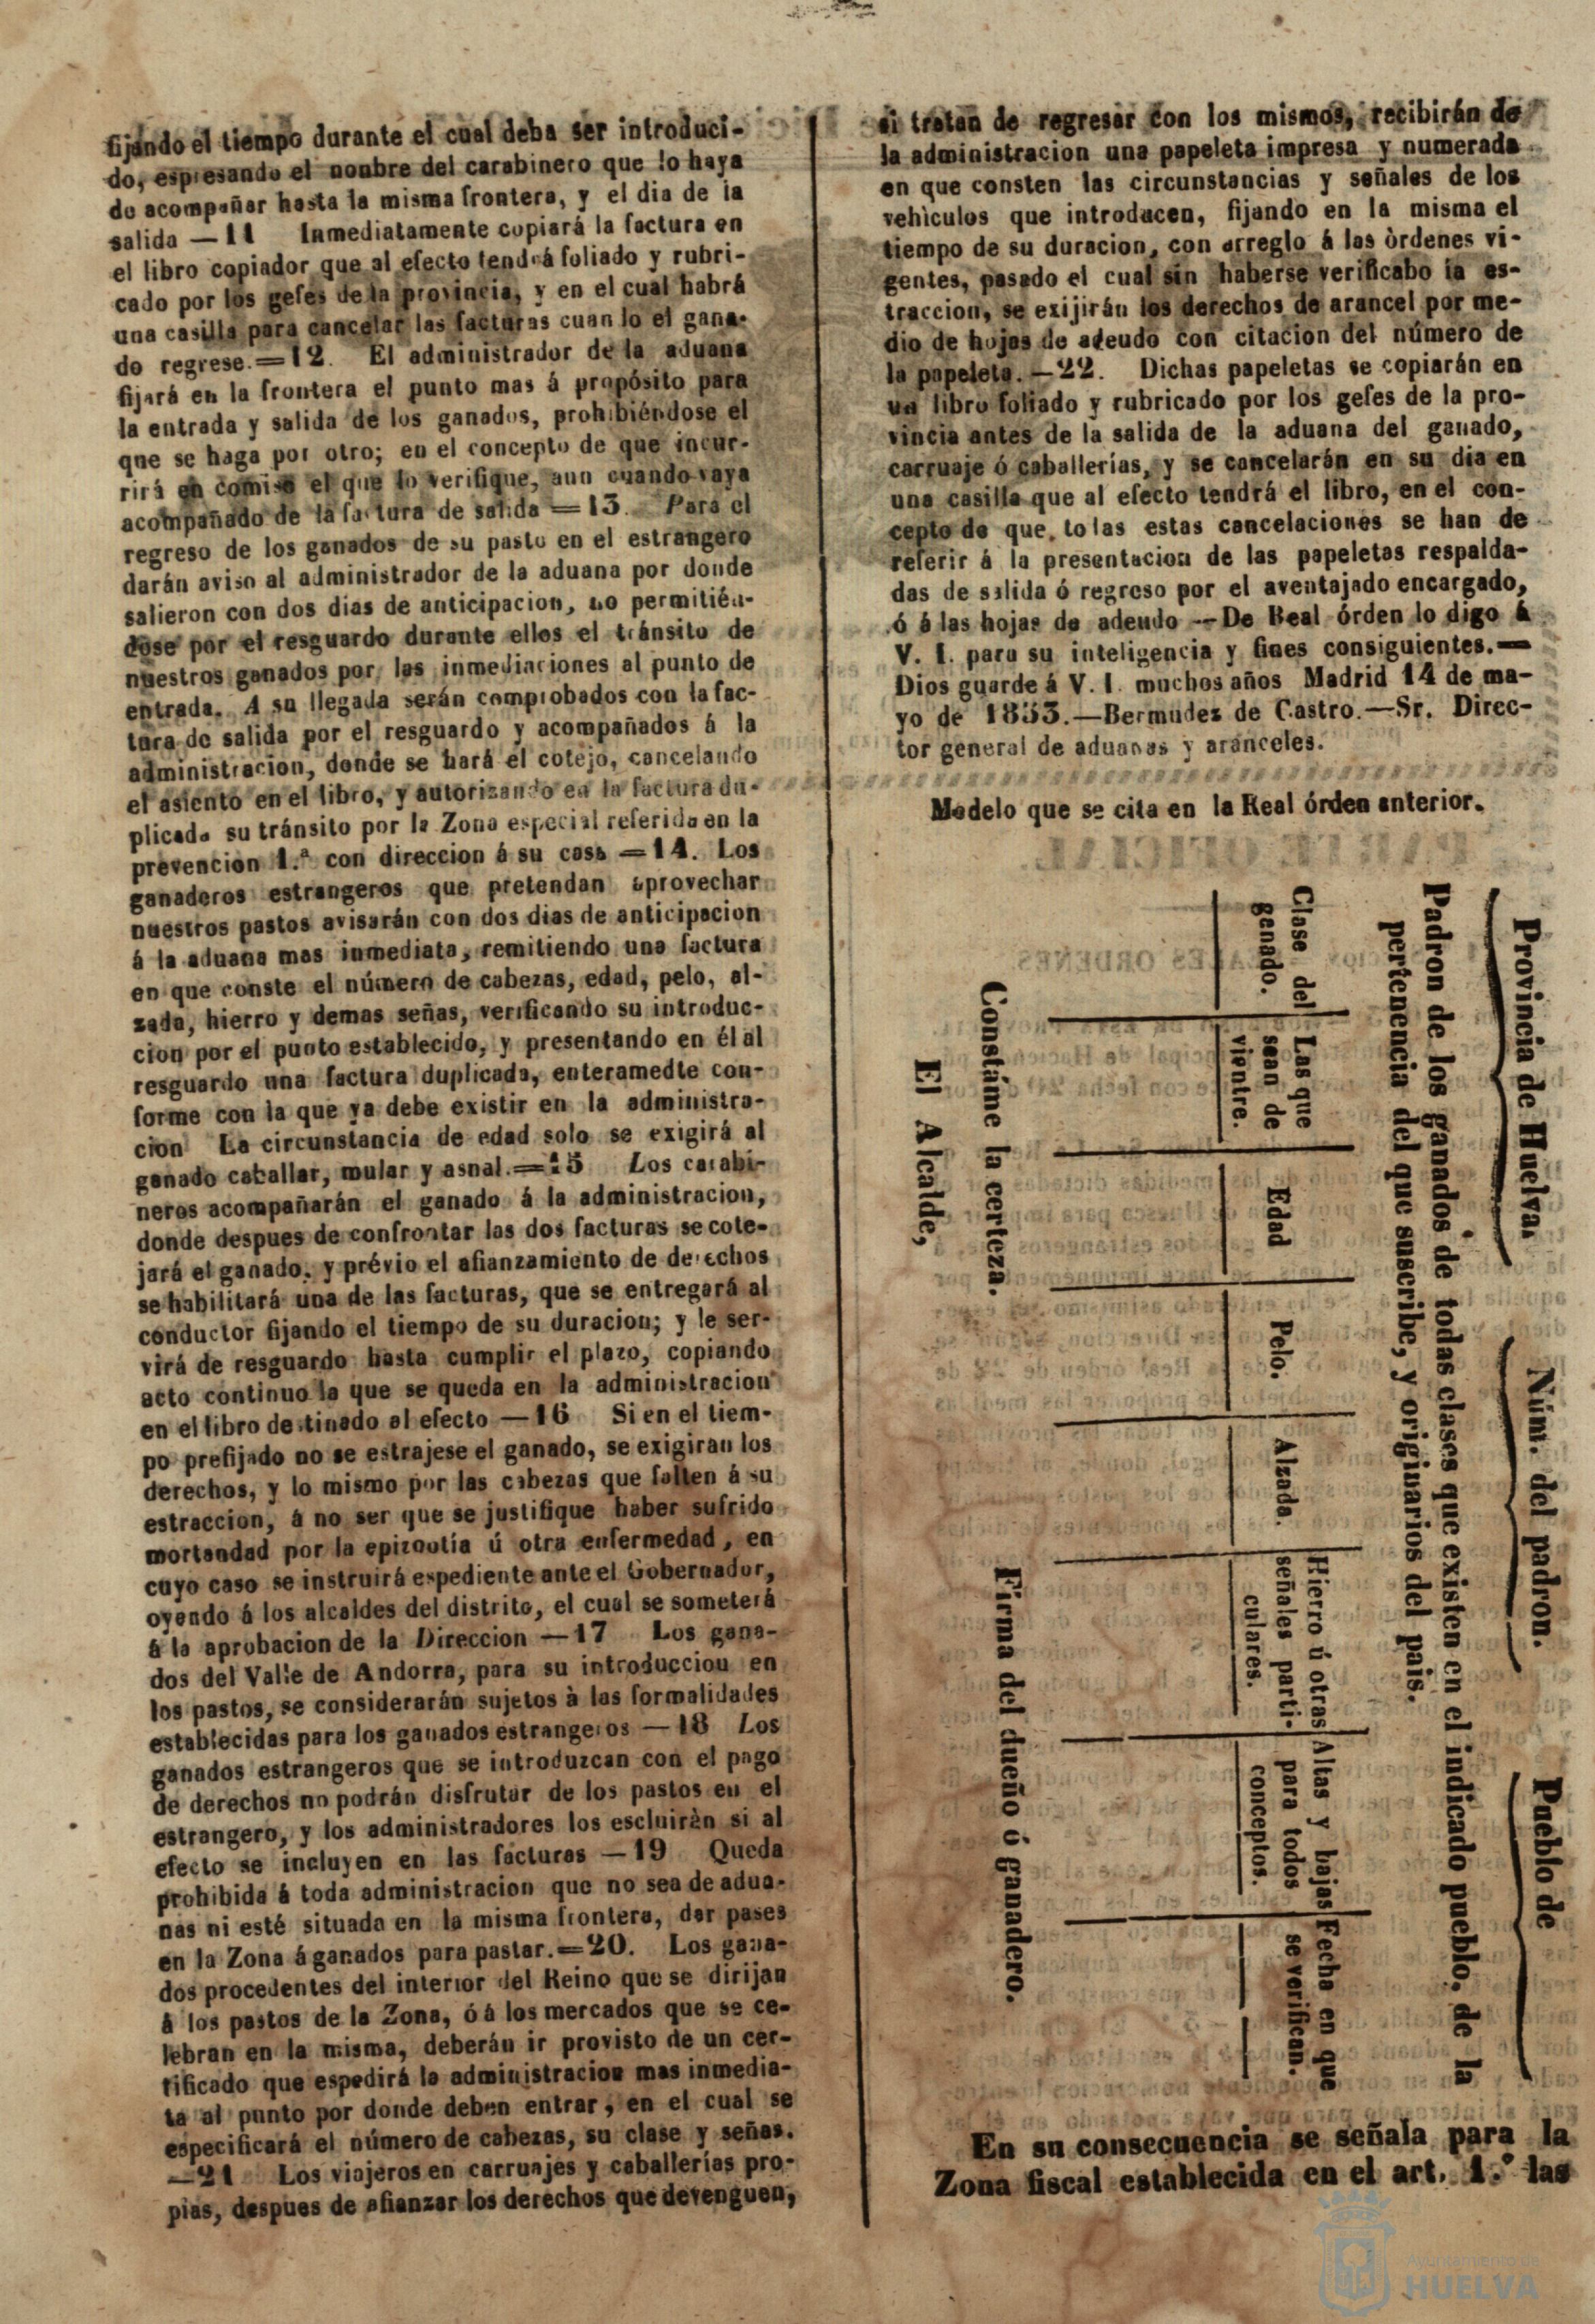 fijando el tiempo durante el cual deba ser introduci-
do, espresando el nonbre del carabinero que lo haya
de acompañar hasta la misma frontera, y el dia de la
salida —11 Inmediatamente copiará la factura en
el libro copiador que al efecto tendrá foliado y rubri-
cado por los gefes de la provincia, y en el cual habrá
una casilla para cancelar las facturas cuan lo el gana-
do regrese.=12. El administrador de la aduana
fijará en la frontera el punto mas á propósito para
la entrada y salida de los ganados, prohibiéndose el
que se haga por otro; en el concepto de que incur-
rirá en comiso el que lo verifique, aun cuando vaya
acompañado de la factura de salida =13. Para el
regreso de los ganados de su pasto en el estrangero
darán aviso al administrador de la aduana por donde
salieron con dos dias de anticipacion, no permitién-
dose por el resguardo durante ellos el tránsito de
nuestros ganados por las inmediaciones al punto de
entrada. A su llegada serán comprobados con la fac-
tura de salida por el resguardo y acompañados á la
administracion, donde se hará el cotejo, cancelando
el asiento en el libro, y autorizando en la factura du-
plicada su tránsito por la Zona especial referida en la
prevencion 1.ª con direccion á su casa =14. Los
ganaderos estrangeros que pretendan aprovechar
nuestros pastos avisarán con dos dias de anticipacion
á la aduana mas inmediata, remitiendo una factura
en que conste el número de cabezas, edad, pelo, al-
zada, hierro y demas señas, verificando su introduc-
cion por el punto establecido, y presentando en él al
resguardo una factura duplicada, enteramedte con-
forme con la que ya debe existir en la administra-
cion La circunstancia de edad solo se exigirá al
ganado caballar, mular y asnal.=15 Los carabi-
neros acompañarán el ganado á la administracion,
donde despues de confrontar las dos facturas se cote-
jará el ganado, y prévio el afianzamiento de derechos
se habilitará una de las facturas, que se entregará al
conductor fijando el tiempo de su duracion; y le ser-
virá de resguardo hasta cumplir el plazo, copiando
acto continuo la que se queda en la administracion
en el libro destinado al efecto —16 Si en el tiem-
po prefijado no se estrajese el ganado, se exigiran los
derechos, y lo mismo por las cabezas que falten á su
estraccion, á no ser que se justifique haber sufrido
mortandad por la epizootía ú otra enfermedad, en
cuyo caso se instruirá espediente ante el Gobernador,
oyendo á los alcaldes del distrito, el cual se someterá
á la aprobacion de la Direccion —17 Los gana-
dos del Valle de Andorra, para su introduccion en
los pastos, se considerarán sujetos à las formalidades
establecidas para los ganados estrangeros —18 Los
ganados estrangeros que se introduzcan con el pago
de derechos no podrán disfrutar de los pastos en el
estrangero, y los administradores los escluiràn si al
efecto se incluyen en las facturas —19 Queda
prohibida á toda administracion que no sea de adua-
nas ni esté situada en la misma frontera, dar pases
en la Zona á ganados para pastar.=20. Los gana-
dos procedentes del interior del Reino que se dirijan
á los pastos de la Zona, ó á los mercados que se ce-
lebran en la misma, deberán ir provisto de un cer-
tificado que espedirá la administracion mas inmedia-
ta al punto por donde deben entrar, en el cual se
especificará el número de cabezas, su clase y señas.
—21 Los viajeros en carruajes y caballerías pro-
pias, despues de afianzar los derechos que devenguen,
si tratan de regresar con los mismos, recibirán de
la administracion una papeleta impresa y numerada
en que consten las circunstancias y señales de los
vehìculos que introducen, fijando en la misma el
tiempo de su duracion, con arreglo á las òrdenes vi-
gentes, pasado el cual sin haberse verificabo la es-
traccion, se exijirán los derechos de arancel por me-
dio de hojas de adeudo con citacion del número de
la papeleta. —22. Dichas papeletas se copiarán en
un libro foliado y rubricado por los gefes de la pro-
vincia antes de la salida de la aduana del ganado,
carruaje ó caballerías, y se cancelarán en su dia en
una casilla que al efecto tendrá el libro, en el con-
cepto de que, tolas estas cancelaciones se han de
referir á la presentacion de las papeletas respalda-
das de salida ó regreso por el aventajado encargado,
ó á las hojas de adeudo —De Real órden lo digo á
V. I. para su inteligencia y fines consiguientes.—
Dios guarde á V. I. muchos años Madrid 14 de ma-
yo de 1853.—Bermudez de Castro.—Sr. Direc-
tor general de aduanas y aranceles.
Modelo que se cita en la Real órden anterior.
Provincia de Huelva. Núm. del padron. Pueblo de
Padron de los ganados de todas clases que existen en el indicado pueblo, de la
pertenencia del que suscribe, y originarios del pais.
Clase del
ganado.
Las que
sean de
vientre.
Edad
Pelo.
Alzada.
Hierro ú otras
señales parti-
culares.
Altas y bajas
para todos
conceptos.
Fecha en que
se verifican.
Constáme la certeza.
El Alcalde,
Firma del dueño ó ganadero.
En su consecuencia se señala para la
Zona fiscal establecida en el art. 1.º las
Ayuntamiento de
HUELVA